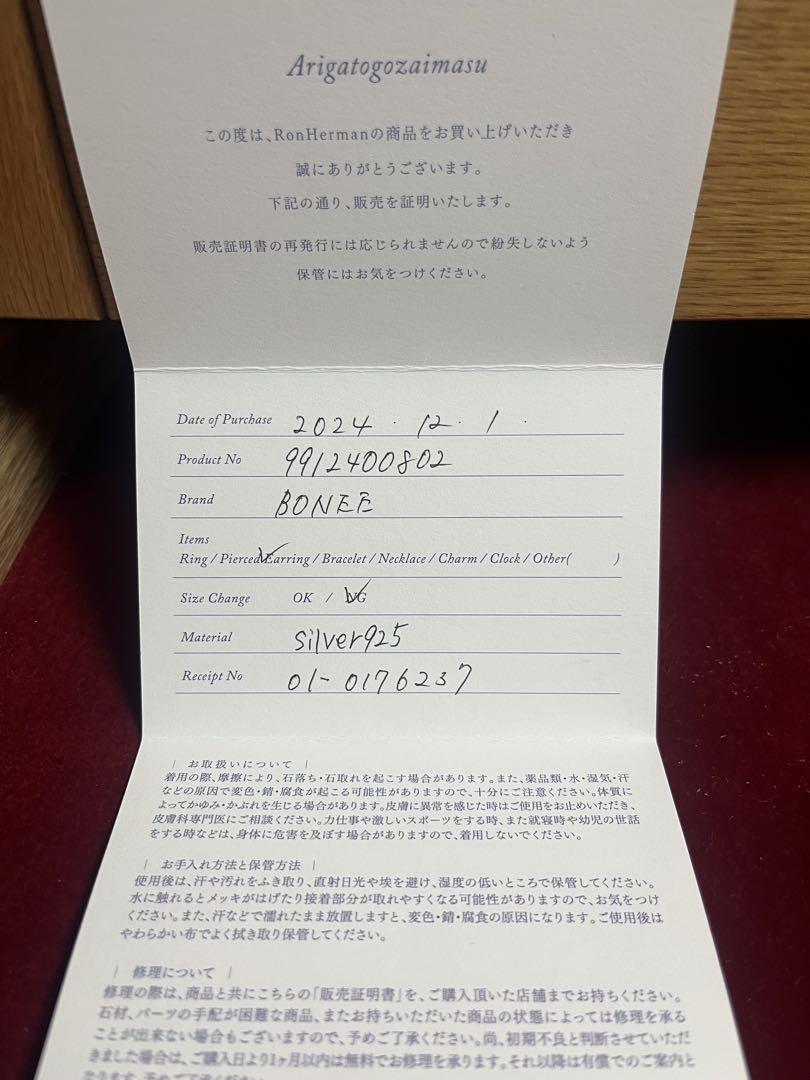 Arigatogozaimasu
この度は、RonHermanの商品をお買い上げいただき
誠にありがとうございます。
下記の通り、販売を証明いたします。
販売証明書の再発行には応じられませんので紛失しないよう
保管にはお気をつけください。
Date of Purchase 2024 . 12 . 1 .
Product No 9912400802
Brand BONEE
Items
Ring / Pierced Earring / Bracelet / Necklace / Charm / Clock / Other( )
Size Change OK / NG
Material Silver925
Receipt No 01-0176237
| お取扱いについて |
着用の際、摩擦により、石落ち・石取れを起こす場合があります。また、薬品類・水・湿気・汗
などの原因で変色・錆・腐食が起こる可能性がありますので、十分にご注意ください。体質に
よってかゆみ・かぶれを生じる場合があります。皮膚に異常を感じた時はご使用をお止めいただき、
皮膚科専門医にご相談ください。力仕事や激しいスポーツをする時、また就寝時や幼児の世話
をする時などは、身体に危害を及ぼす場合がありますので、着用しないでください。
| お手入れ方法と保管方法 |
使用後は、汗や汚れをふき取り、直射日光や埃を避け、湿度の低いところで保管してください。
水に触れるとメッキがはげたり接着部分が取れやすくなる可能性がありますので、お気をつけ
ください。また、汗などで濡れたまま放置しますと、変色・錆・腐食の原因になります。ご使用後は
やわらかい布でよく拭き取り保管してください。
| 修理について |
修理の際は、商品と共にこちらの「販売証明書」を、ご購入頂いた店舗までお持ちください。
石材、パーツの手配が困難な商品、またお持ちいただいた商品の状態によっては修理を承る
ことが出来ない場合もございますので、予めご了承ください。尚、初期不良と判断させていただ
きました場合は、ご購入日より1ヶ月以内は無料でお修理を承ります。それ以降は有償でのご案内と
なります。予めご了承ください。